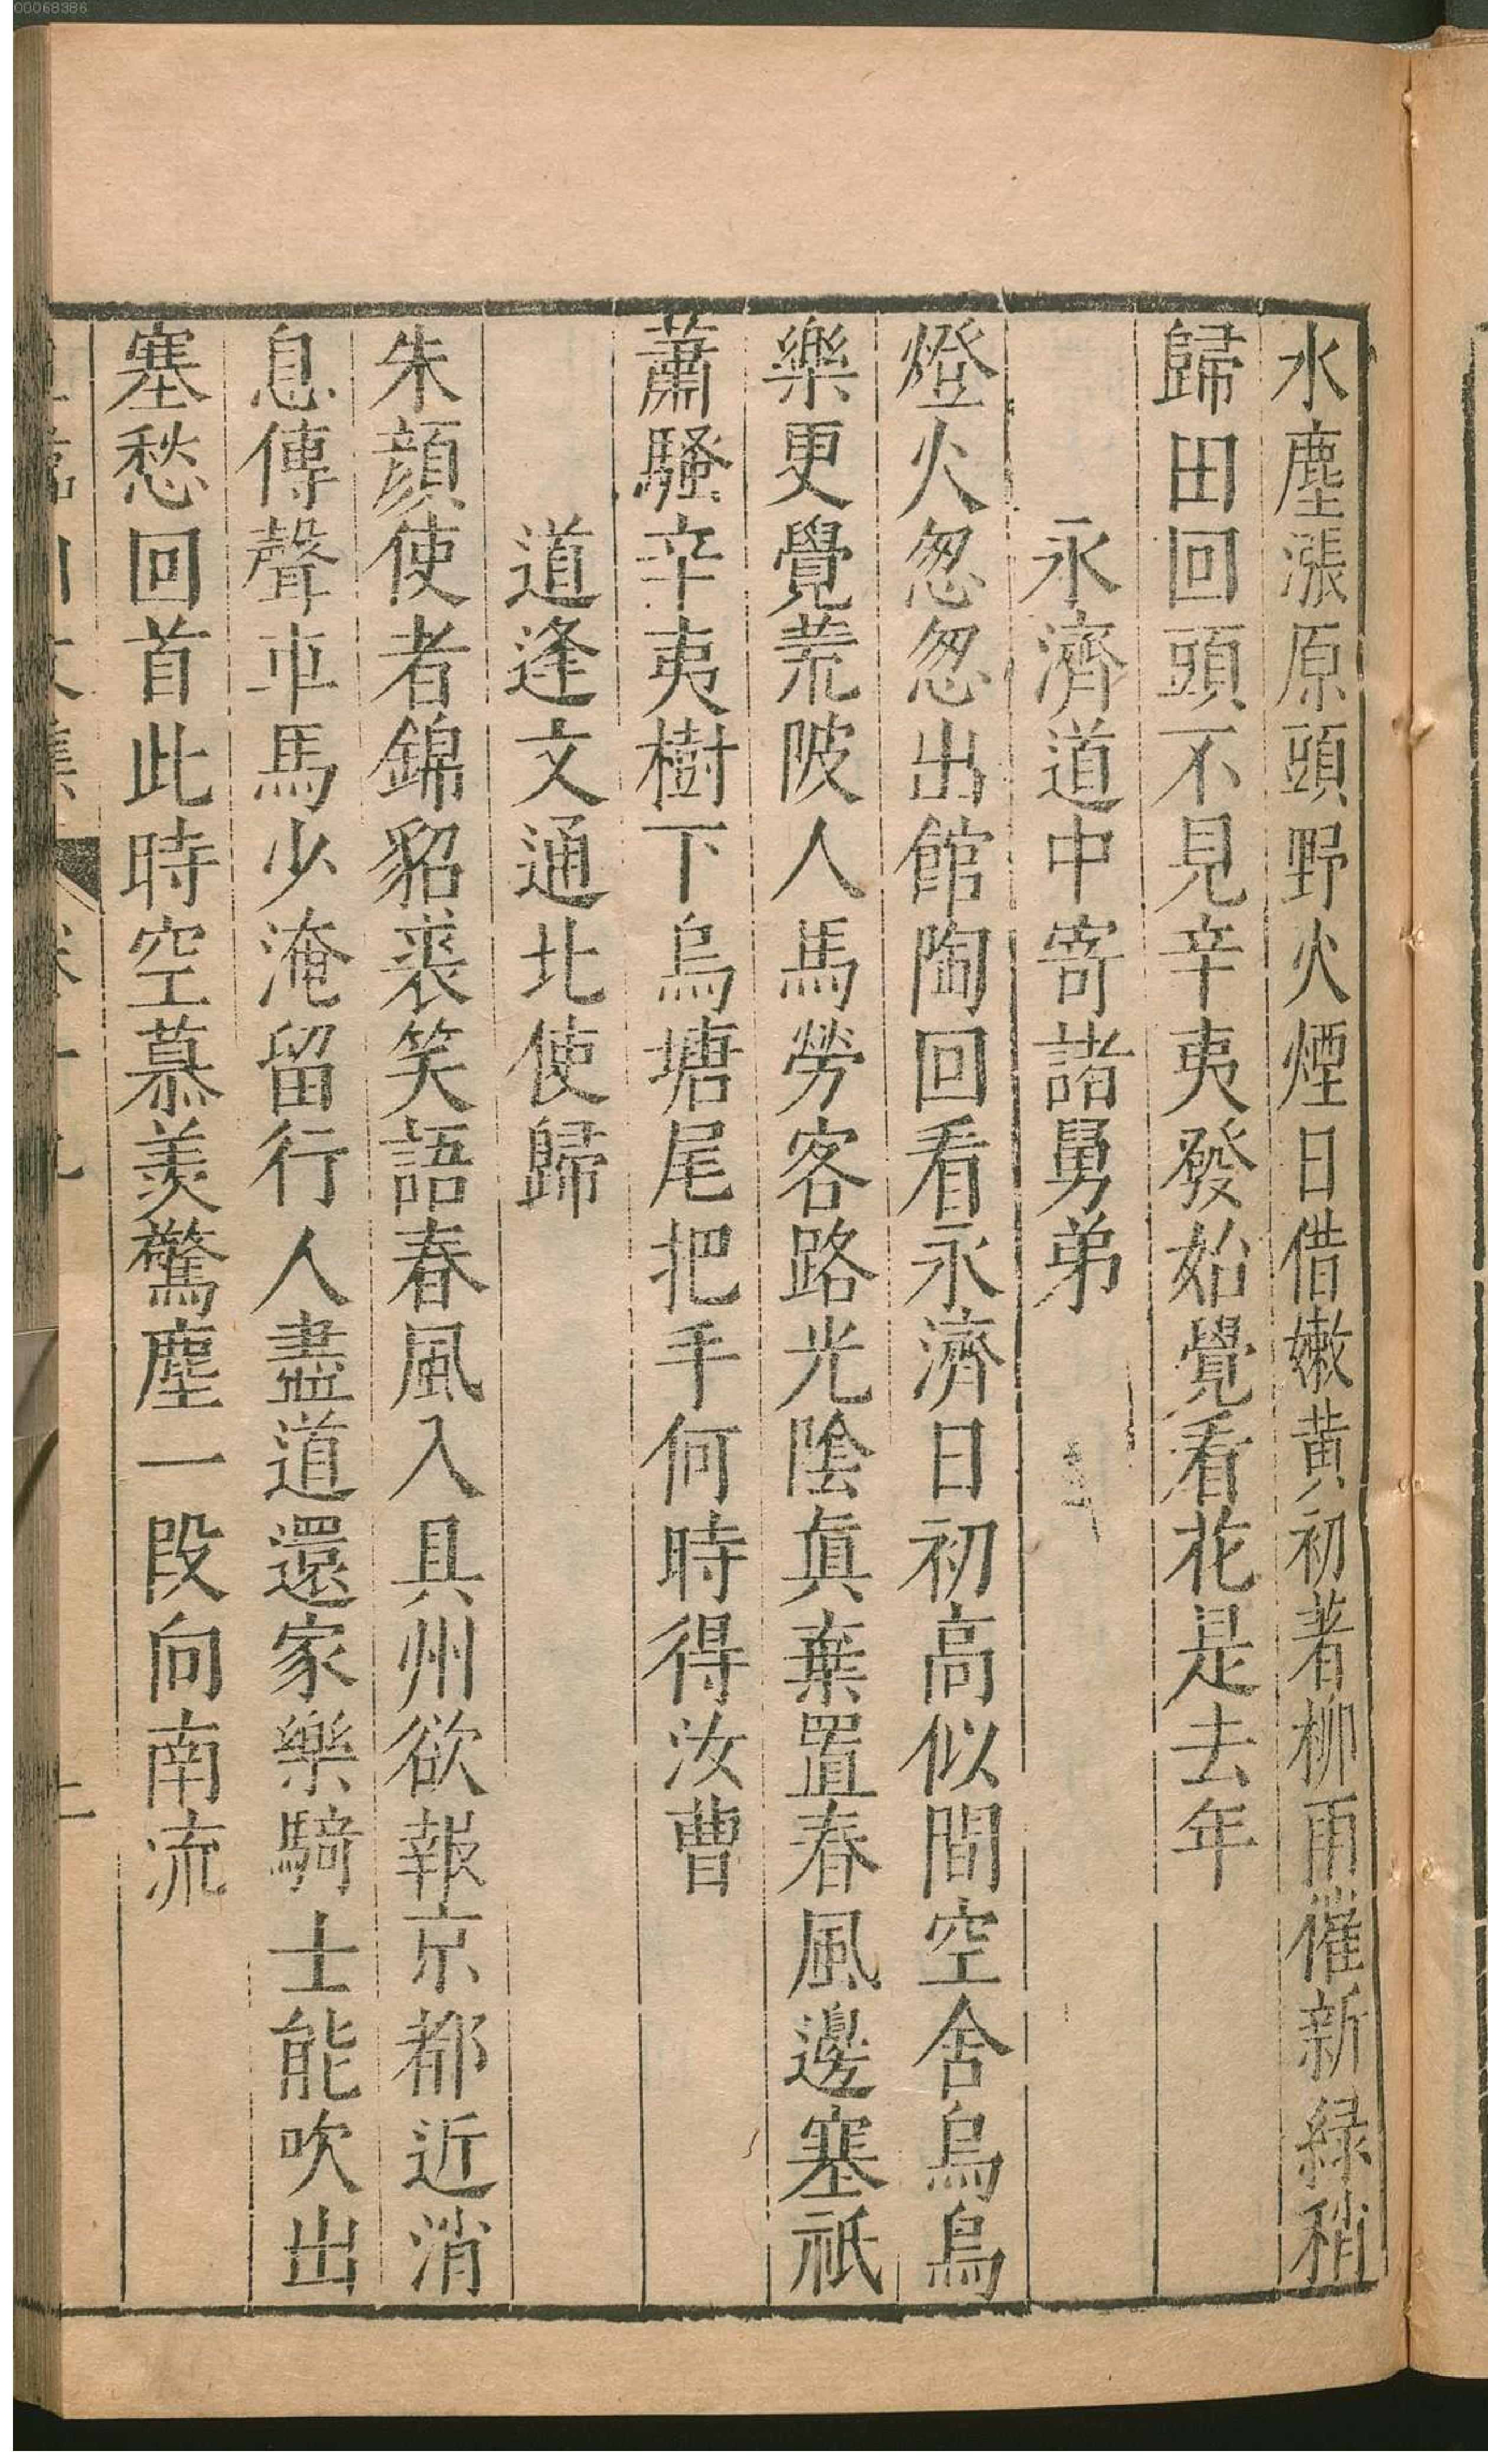 00068386
水塵漲原頭野火煙日借嫩黄初著柳雨催新緑稍
歸田回頭不見辛夷發始覺看花是去年
永濟道中寄諸舅弟
燈火怱怱出館陶回看永濟日初高似間空舍烏烏
樂更覺荒陂人馬勞客路光陰眞棄置春風邊塞祇
蕭騷辛夷樹下烏塘尾把手何時得汝曹
道逢文通北使歸
朱顔使者錦貂裘笑語春風入具州欲報京都近消
息傳聲車馬少淹留行人盡道還家樂騎士能吹出
塞愁回首此時空慕羨驚塵一段向南流